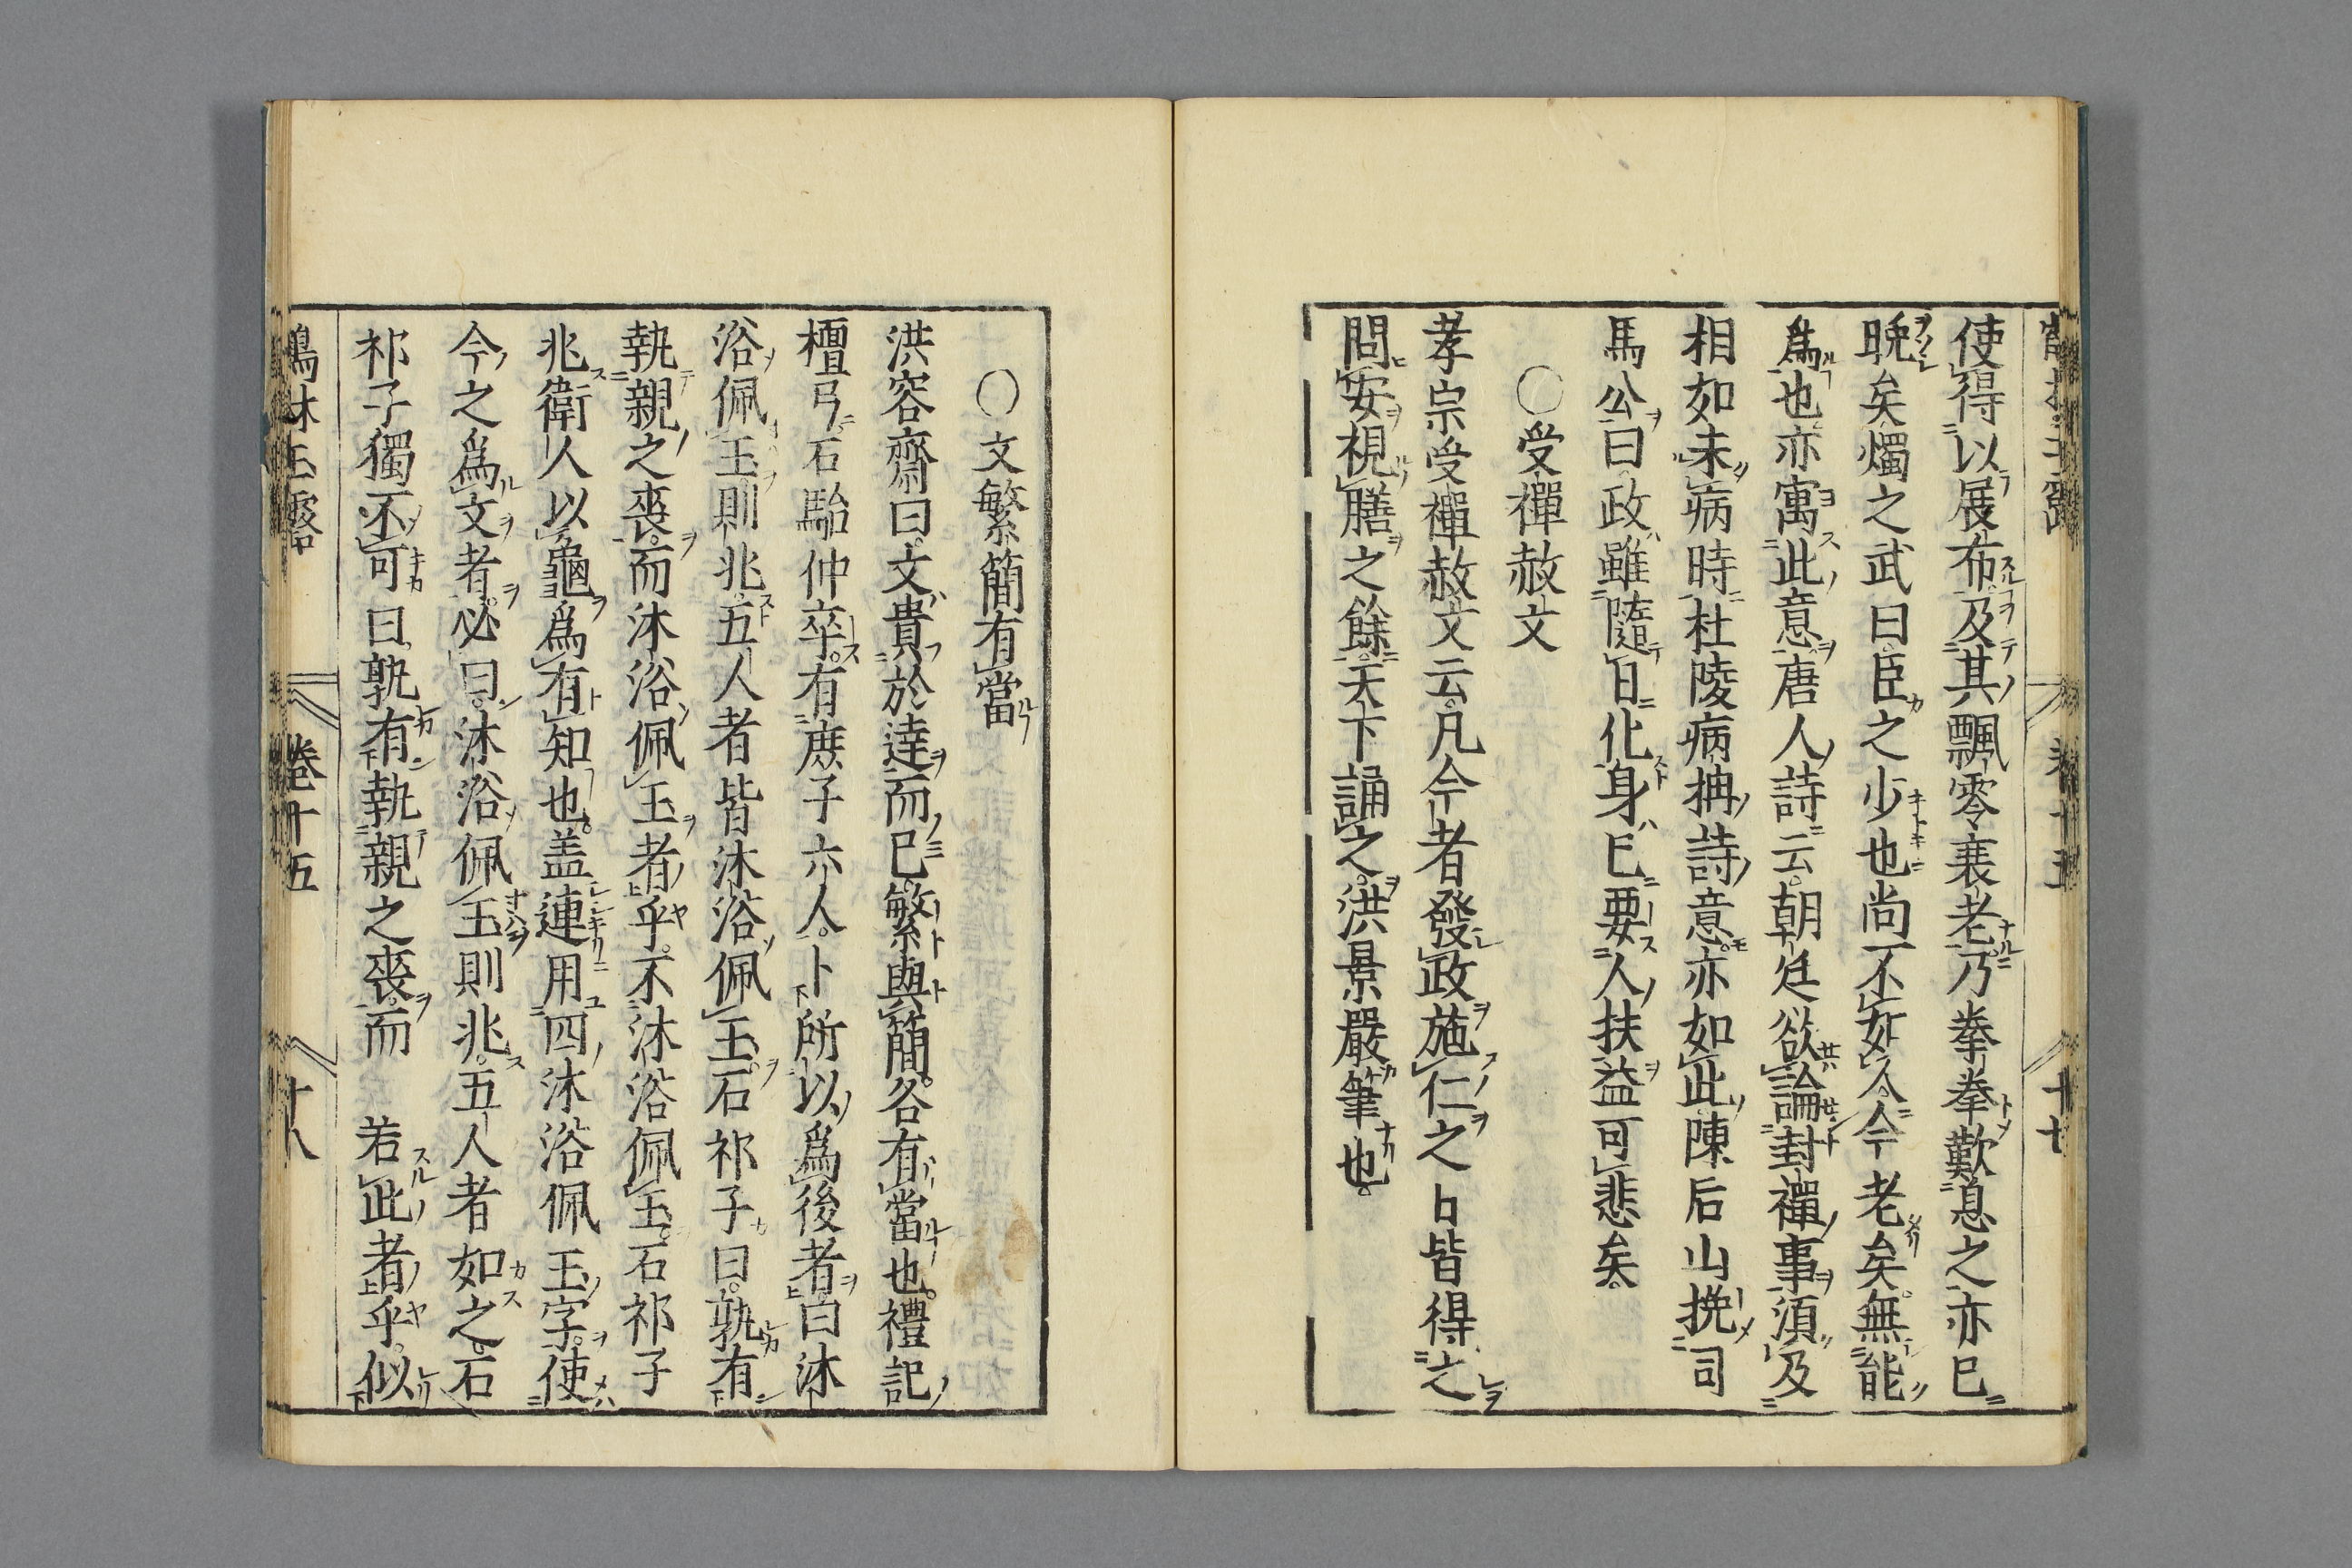 使得以展布及其飄零衰老乃拳拳歎息之亦已
晩矣燭之武曰臣之少也尚不如人今老矣無能
爲也亦寓此意唐人詩云朝廷欲論封禪事須及
相如未病時杜陵病柟詩意亦如此陳后山挽司
馬公曰政雖隨日化身已要人扶益可悲矣
○受禪赦文
孝宗受禪赦文云凡今者發政施仁之日皆得之
問安視膳之餘天下誦之洪景嚴筆也
○文繁簡有當
洪容齋曰文貴於達而已繁與簡各有當也禮記
檀弓石駘仲卒有庶子六人卜所以爲後者曰沐
浴佩玉則兆五人者皆沐浴佩玉石祁子曰孰有
執親之喪而沐浴佩玉者乎不沐浴佩玉石祁子
兆衛人以龜爲有知也盖連用四沐浴佩玉字使
今之爲文者必曰沐浴佩玉則兆五人者如之石
祁子獨不可曰孰有執親之喪而 若此者乎似
鶴林玉露 卷十五 十八